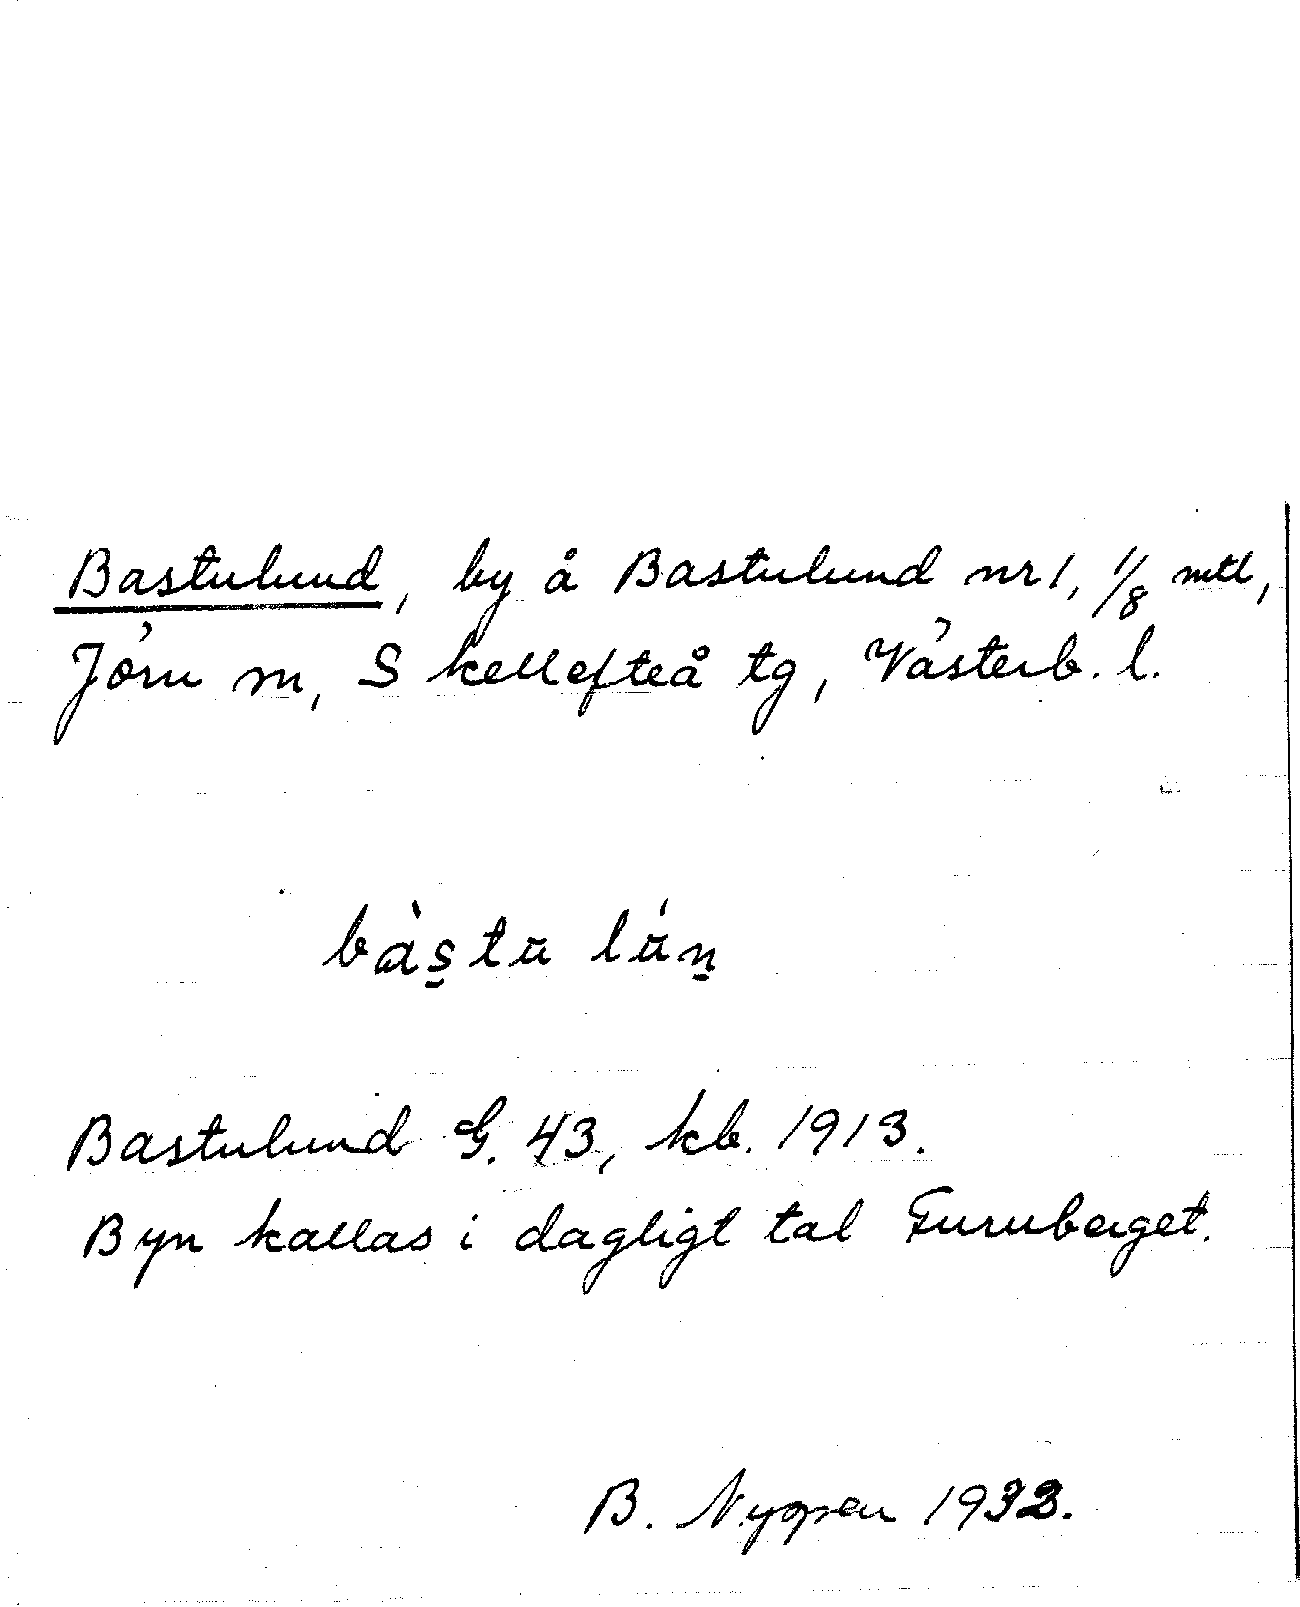 Bastulund, by å Bastulund nr 1, 1/8 mtl,
Jörn sn, Skellefteå tg, Västerb. l.
bàs̱tū lú̄ṉ
Bastulund G. 43, kb. 1913.
Byn kallas i dagligt tal Furuberget.
B. 1932.